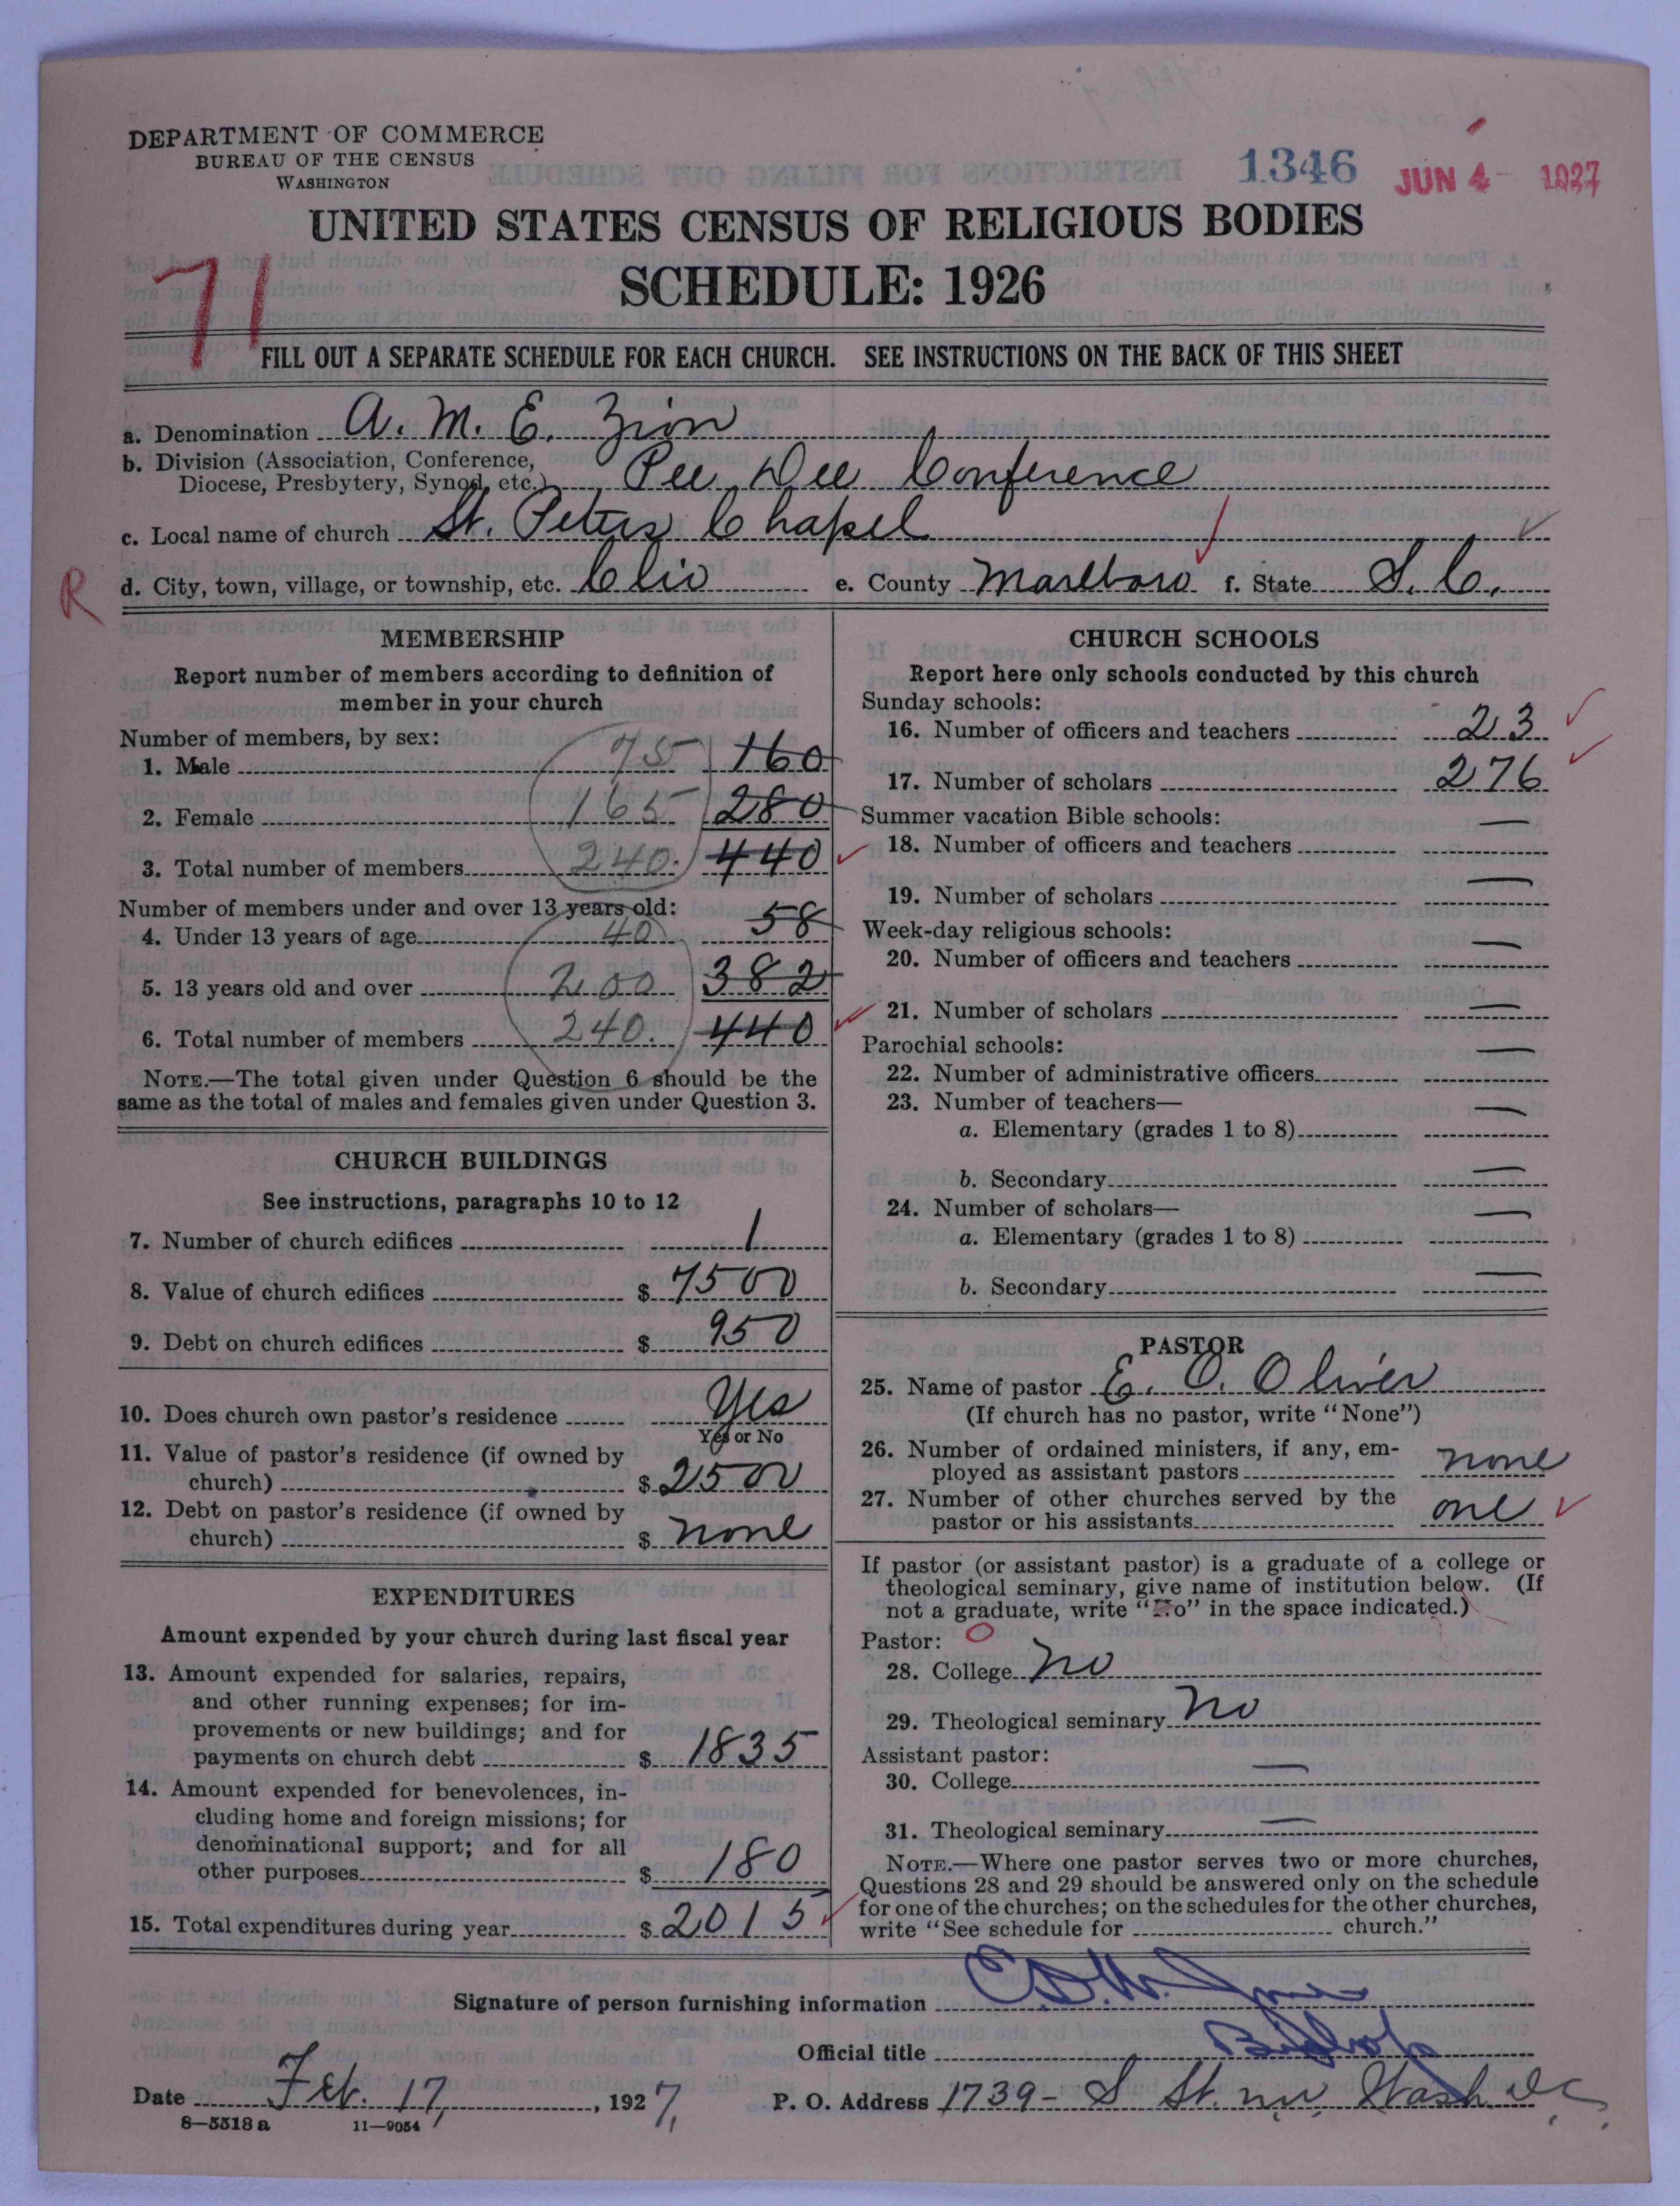 DEPARTMENT OF COMMERCE
BUREAU OF THE CENSUS
WASHINGTON
1346 JUN 4 1927
UNITED STATES CENSUS OF RELIGIOUS BODIES
SCHEDULE: 1926
71
FILL OUT A SEPARATE SCHEDULE FOR EACH CHURCH. SEE INSTRUCTIONS ON THE BACK OF THIS SHEET
a. Denomination A. M. E. Zion
b. Division (Association, Conference,
Diocese, Presbytery, Synod, etc.) Pee Dee Conference
c. Local name of church St. Peters Chapel
R d. City, town, village, or township, etc. Clio e. County Marlboro f. State S. C.
MEMBERSHIP
Report number of members according to definition of
member in your church
Number of members, by sex:
1. Male 75 160
2. Female 165 280
3. Total number of members 240. 440
Number of members under and over 13 years old:
4. Under 13 years of age 40 58
5. 13 years old and over 200 382
6. Total number of members 240. 440
NOTE.—The total given under Question 6 should be the
same as the total of males and females given under Question 3.
CHURCH BUILDINGS
See instructions, paragraphs 10 to 12
7. Number of church edifices 1
8. Value of church edifices $ 7500
9. Debt on church edifices $ 950
10. Does church own pastor's residence Yes
Yes or No
11. Value of pastor's residence (if owned by
church) $ 2500
12. Debt on pastor's residence (if owned by
church) $ none
EXPENDITURES
Amount expended by your church during last fiscal year
13. Amount expended for salaries, repairs,
and other running expenses; for im-
provements or new buildings; and for
payments on church debt $ 1835
14. Amount expended for benevolences, in-
cluding home and foreign missions; for
denominational support; and for all
other purposes $ 180
15. Total expenditures during year $ 2015
CHURCH SCHOOLS
Report here only schools conducted by this church
Sunday schools:
16. Number of officers and teachers 23
17. Number of scholars 276
Summer vacation Bible schools:
18. Number of officers and teachers —
19. Number of scholars —
Week-day religious schools:
20. Number of officers and teachers —
21. Number of scholars —
Parochial schools:
22. Number of administrative officers —
23. Number of teachers—
a. Elementary (grades 1 to 8) —
b. Secondary —
24. Number of scholars—
a. Elementary (grades 1 to 8) —
b. Secondary —
PASTOR
25. Name of pastor E. O. Oliver
(If church has no pastor, write "None")
26. Number of ordained ministers, if any, em-
ployed as assistant pastors none
27. Number of other churches served by the
pastor or his assistants one
If pastor (or assistant pastor) is a graduate of a college or
theological seminary, give name of institution below. (If
not a graduate, write "No" in the space indicated.)
Pastor: O
28. College No
29. Theological seminary No
Assistant pastor:
30. College —
31. Theological seminary —
NOTE.—Where one pastor serves two or more churches,
Questions 28 and 29 should be answered only on the schedule
for one of the churches; on the schedules for the other churches,
write "See schedule for church."
Signature of person furnishing information
Official title Bishop
Date Feb. 17, 1927, P. O. Address 1739- S St. n.w. Wash. D.C.
8—5518 a 11—9054